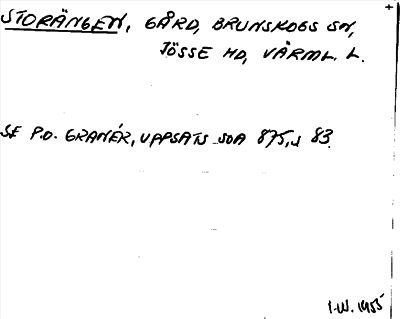 STORÄNGEN, GÅRD, BRUNSKOGS SN,
JÖSSE HD, VÄRML. L.
SE P.O. GRANÉR, UPPSATS SOA 875, s 83.
I.W. 1955